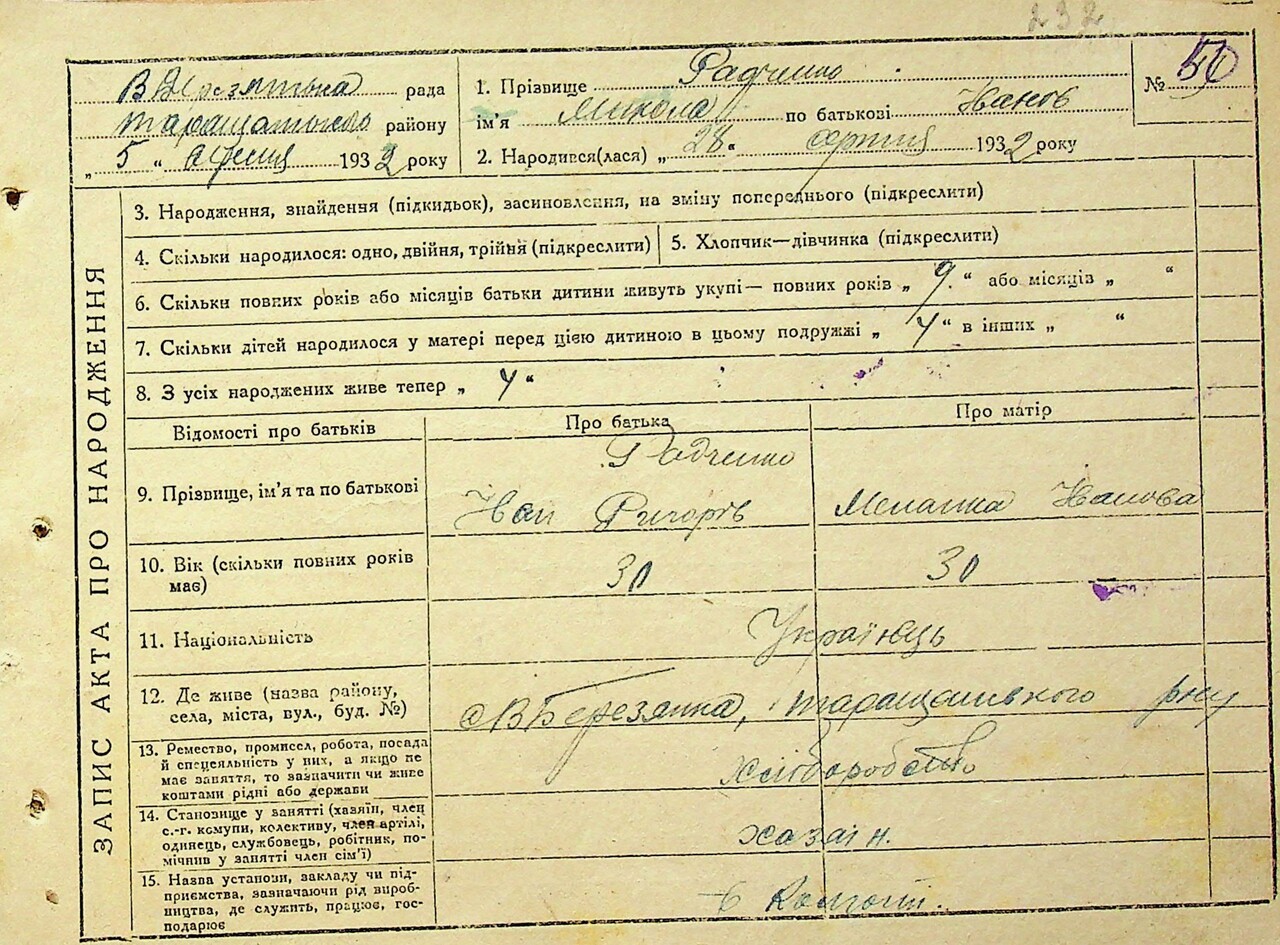 232
ЗАПИС АКТА ПРО НАРОДЖЕННЯ
рада
Таращанського району
„ 5 “ 1932 року
1. Прізвище Радченко
ім'я Микола по батькові Іванов
2. Народився(лася) „ 28 “ серпня 1932 року
№ 50
3. Народження, знайдення (підкидьок), засиновлення, на зміну попереднього (підкреслити)
4. Скільки народилося: одно, двійня, трійня (підкреслити)
5. Хлопчик—дівчинка (підкреслити)
6. Скільки повних років або місяців батьки дитини живуть укупі— повних років „ 9. “ або місяців „ “
7. Скільки дітей народилося у матері перед цією дитиною в цьому подружжі „ 4 “ в інших „ “
8. З усіх народжених живе тепер „ 4 “
Відомості про батьків
Про батька
Про матір
9. Прізвище, ім'я та по батькові
Радченко
Іван Григорів
Меланка Іванова
10. Вік (скільки повних років
має)
30
30
11. Національність
Українець
12. Де живе (назва району,
села, міста, вул., буд. №)
с В Березянка, Таращанського р-ну
13. Ремество, промисел, робота, посада
й спецеяльність у них, а якщо не
має заняття, то зазначити чи живе
коштами рідні або держави
хліборобство
14. Становище у занятті (хазяїн, член
с.-г. комуни, колективу, член артілі,
одинець, службовець, робітник, по-
мічник у занятті член сім'ї)
хазаін.
15. Назва установи, закладу чи під-
приємства, зазначаючи рід вироб-
ництва, де служить, працює, гос-
подарює
в